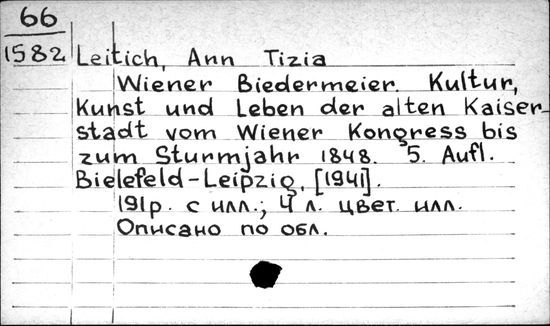 66
1582 Leitich, Ann Tizia
Wiener Biedermeier. Kultur,
Kunst und Leben der alten Kaiser-
stadt vom Wiener Kongress bis
zum Sturmjahr 1848. 5. Aufl.
Bielefeld-Leipzig, [1941].
191p. с илл.; 4 л. цвет. илл.
Описано по обл.